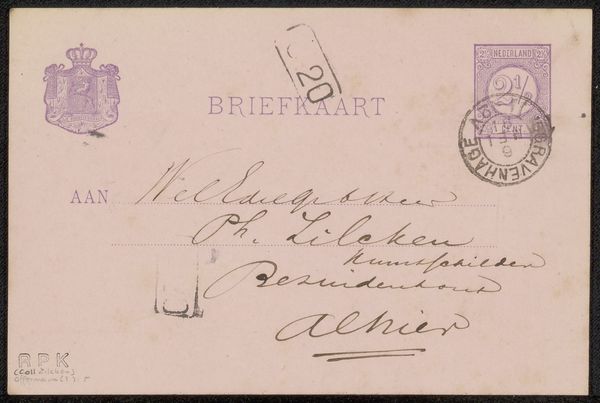 20
NEDERLAND
2½
CENT
BRIEFKAART
'S GRAVENHAGE
AAN WelEdelgeboren
Ph. Zilcken
Kunstschilder
Bezuidenhout
Alhier
RPK
(Coll Zilcken)